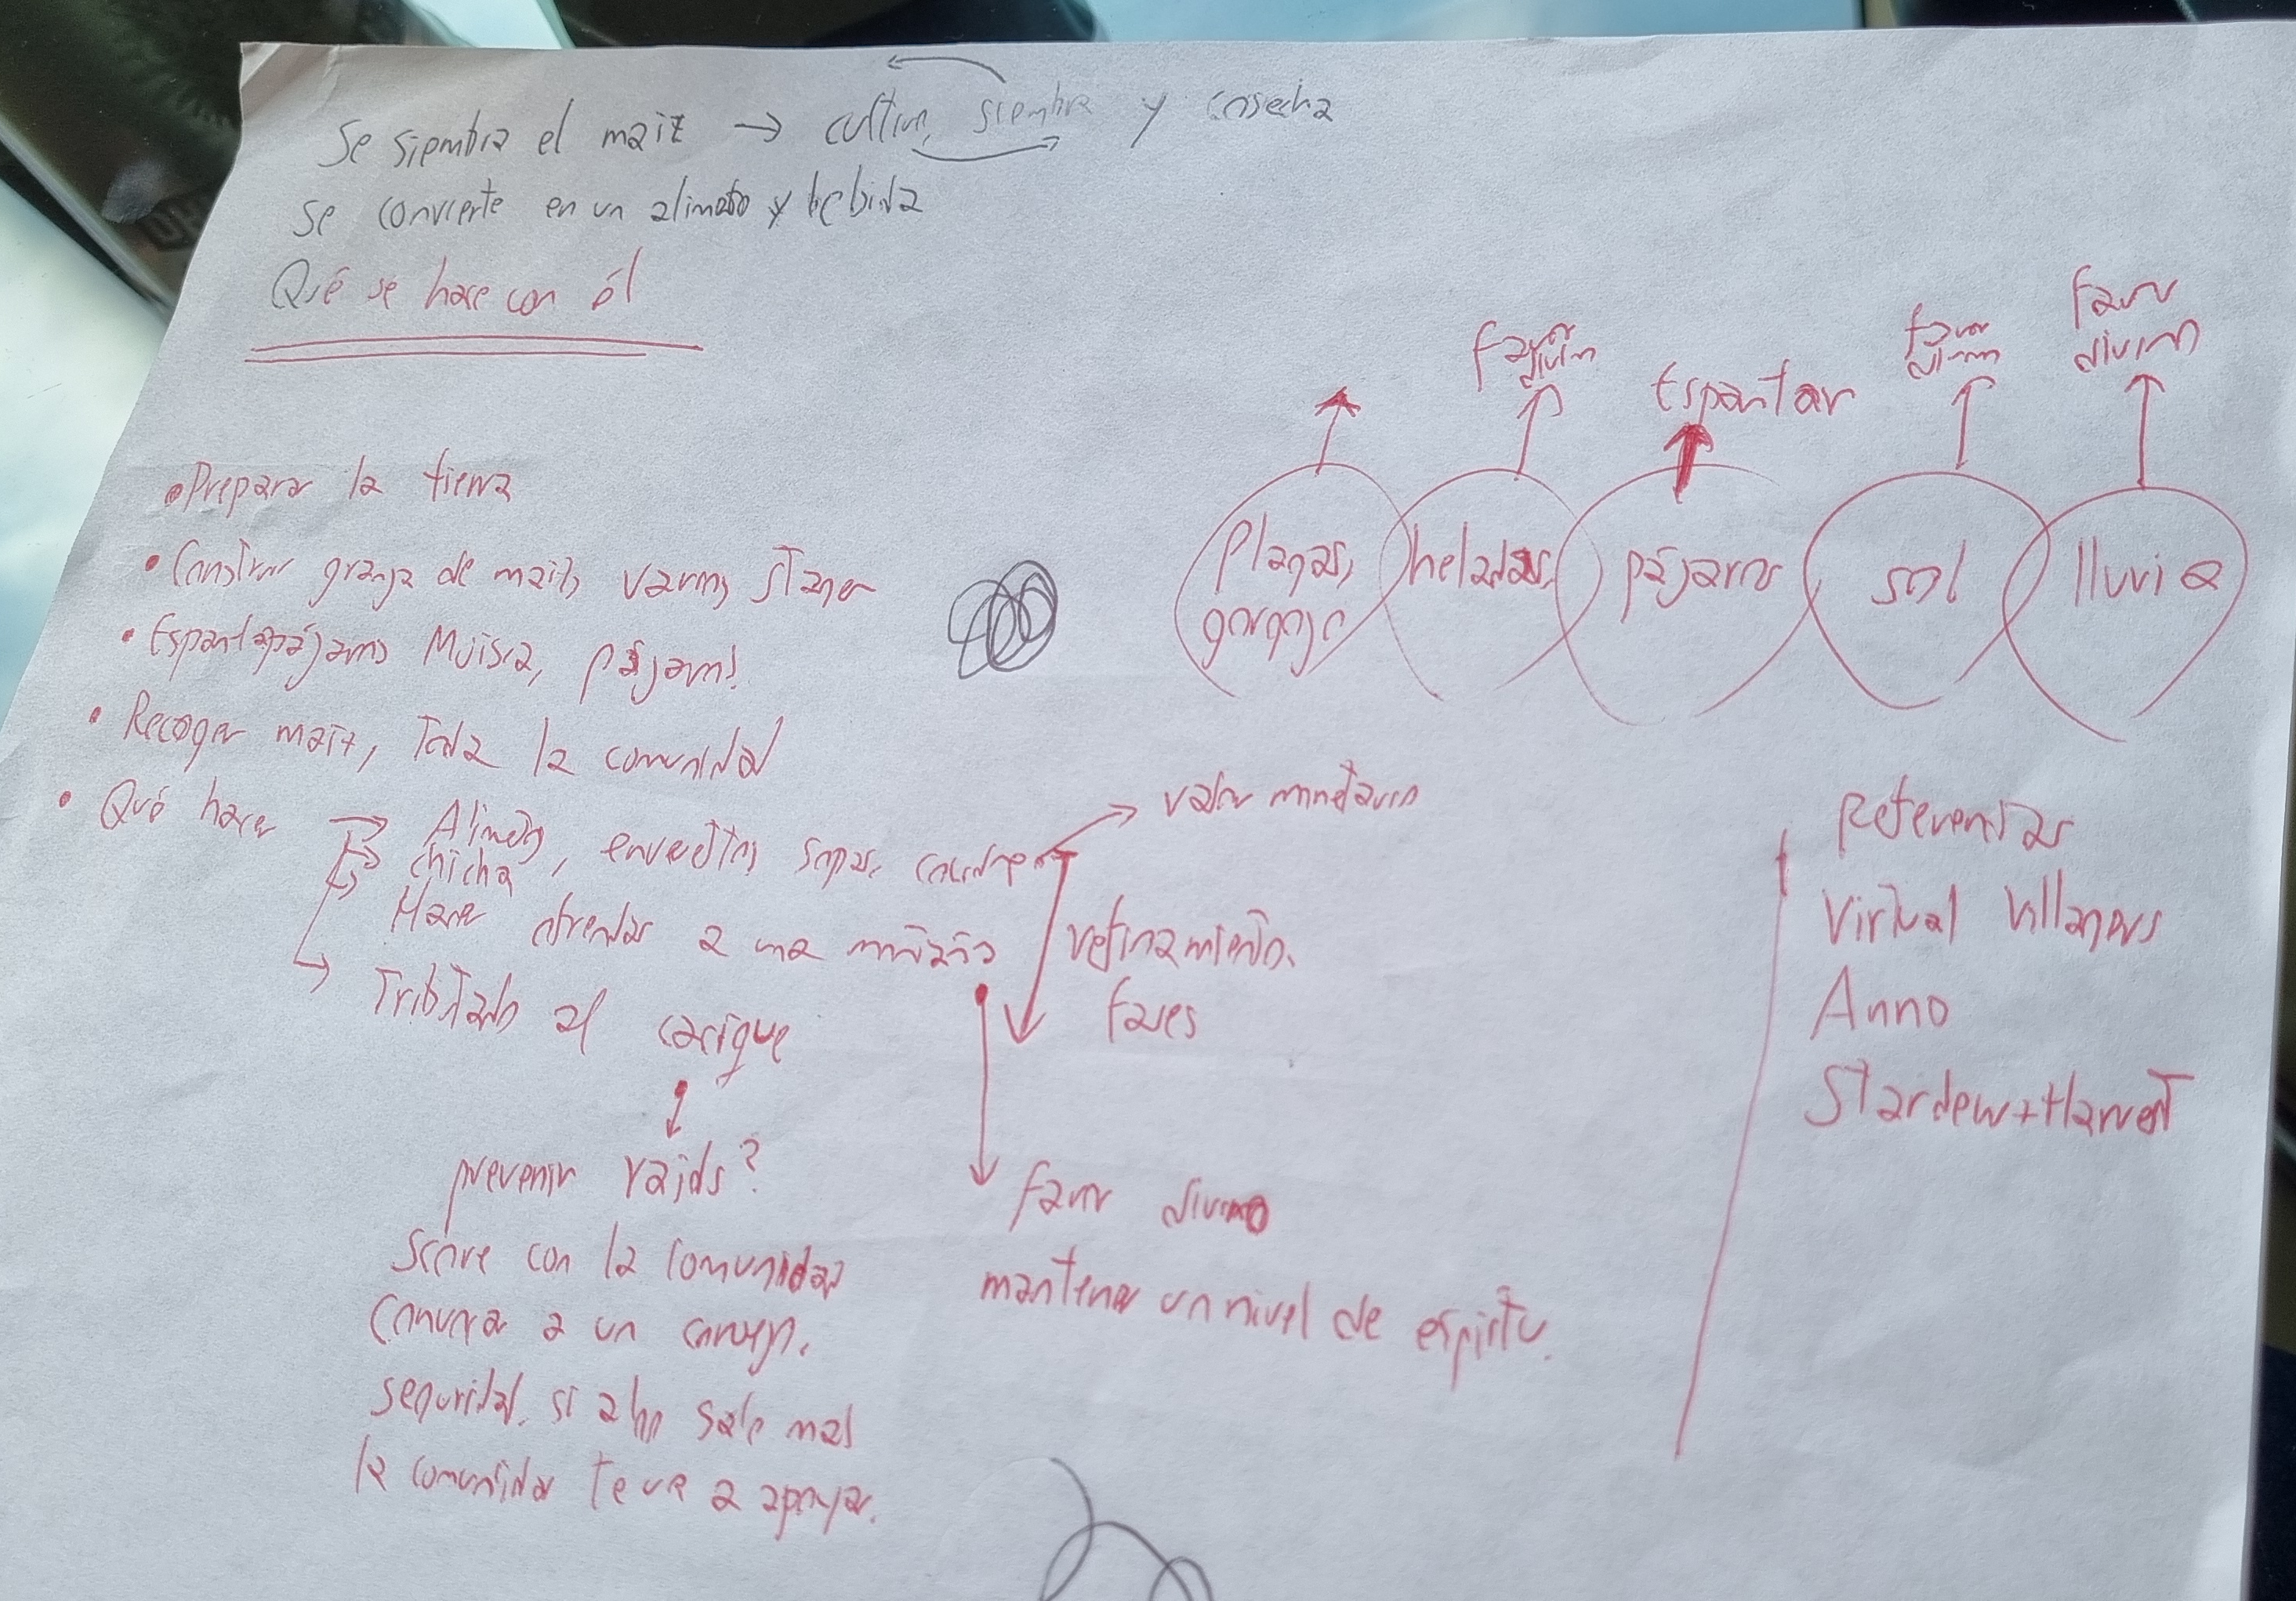 Se siembra el maiz → cultivo, siembra y cosecha
se convierte en un alimeto y bebida
Qué se hace con él
• Preparar la tierra
• Construir granja de maiz, varios
• Espantapájaros Muisca, pájaros!
• Recoger maiz, Toda la comunidad
• Qué hacer → Alimeto, envueltos, sopas,
chicha
Hacer ofrendas a una
→ Tributado al cacique
prevenir raids?
score con la comunidad
convocar a un consejo.
seguridad. si algo sale mal
la comunidad te va a apoyar.
→ valor monetario
refinamiento.
fases
favor divino
mantener un nivel de espiritu.
favor
divino
Espantar
favor
divino
favor
divino
Plagas,
gorgojo
heladas,
pájaros
sol
lluvia
Referentes
Virtual Villagers
Anno
Stardew + Harvest